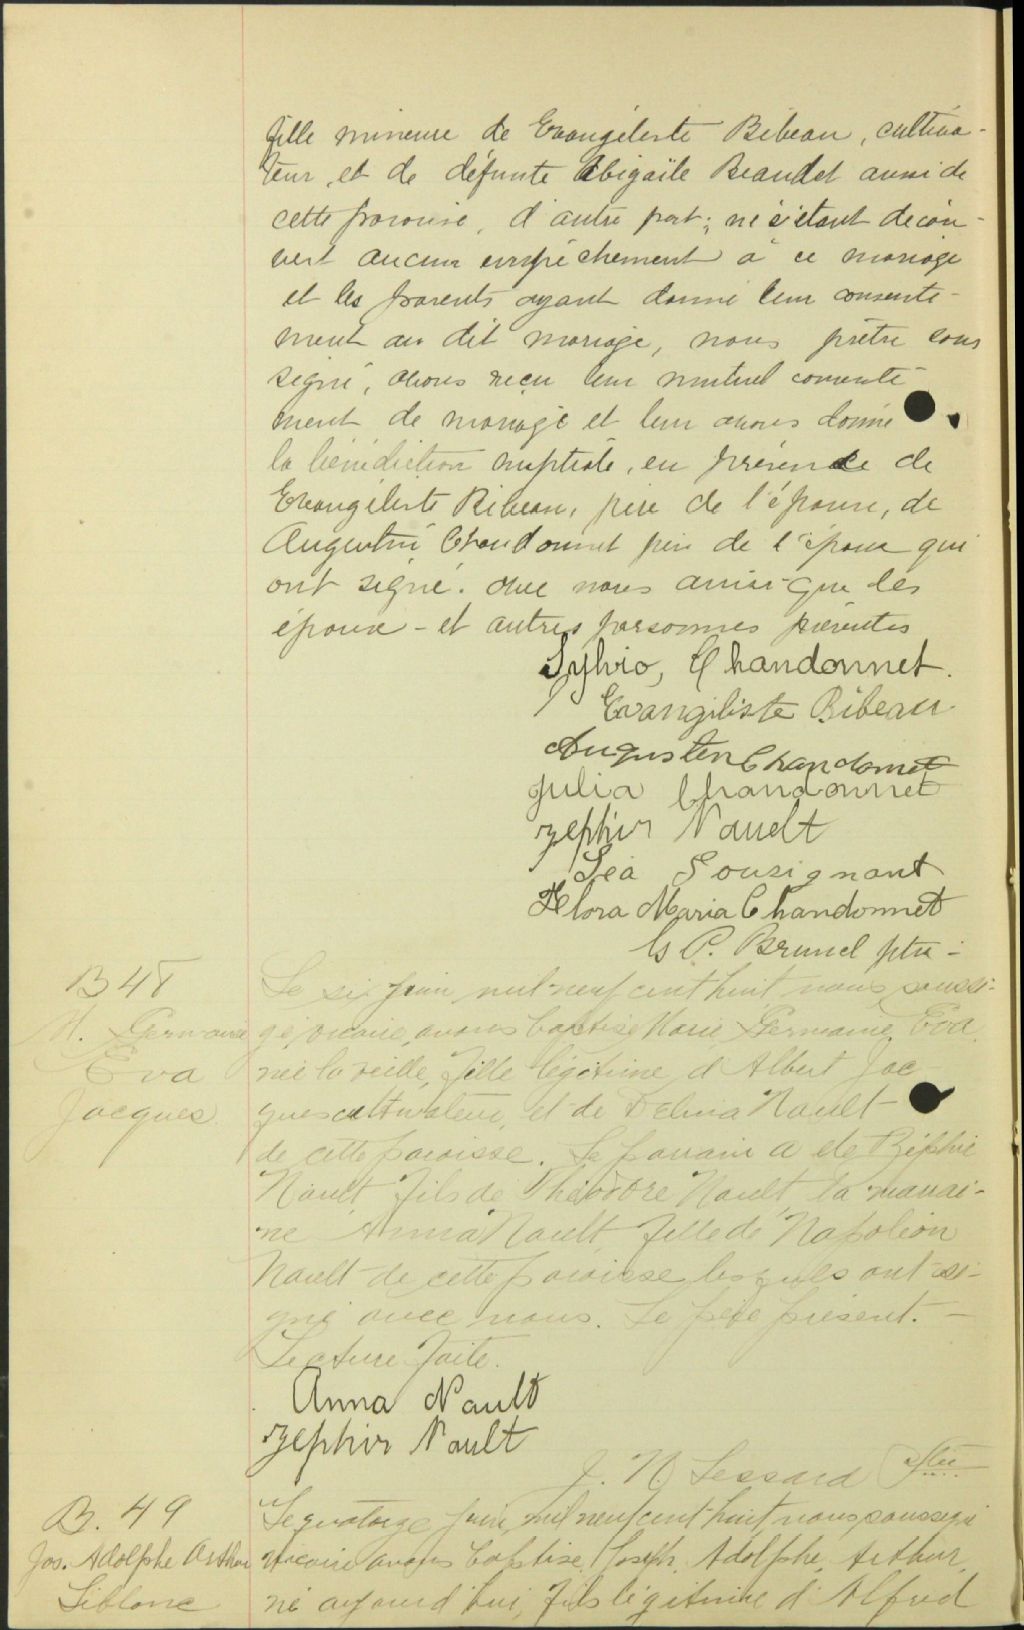 fille mineure de Evangéliste Bibeau, cultiva-
teur, et de défunte Abigaïle Beaudet aussi de
cette paroisse, d'autre part; ne s'étant décou-
vert aucun empêchement à ce mariage
et les parents ayant donné leur consente-
ment au dit mariage, nous prêtre sous
signé, avons reçu leur mutuel consente-
ment de mariage et leur avons donné
la bénédiction nuptiale, en présence de
Evangéliste Bibeau, père de l'épouse, de
Augustin Chandonnet père de l'époux qui
ont signé. avec nous ainsi que les
époux - et autres personnes présentes
Sylvio, Chandonnet.
Evangiliste Bibeau
Augusten Chandonnet
Julia Chandonnet
Zephir Nault
Léa Sousignant
Flora Maria Chandonnet
P. Brunel ptre -
B 48
M. Germaine
Eva
Jacques
Le six juin mil neuf cent huit nous soussi-
gé, vicaire, avons baptisé Marie Germaine Eva
née la veille, fille légitime d'Albert Jac-
ques cultivateur, et de Delina Nault -
de cette paroisse. Le parrain a été Zéphir
Nault, fils de Théodore Nault, la marrai-
ne Anna Nault fille de Napoléon
Nault de cette paroisse lesquels ont si-
gné avec nous. Le père présent. -
Lecture faite.
Anna Nault
Zephir Nault
J. N. Lessard Ptre
B. 49
Jos. Adolphe Arthur
Leblanc
Le quatorze juin, mil neuf cent huit, nous soussigné
vicaire avons baptisé Joseph, Adolphe, Arthur,
né aujourd'hui, fils légitime d'Alfred